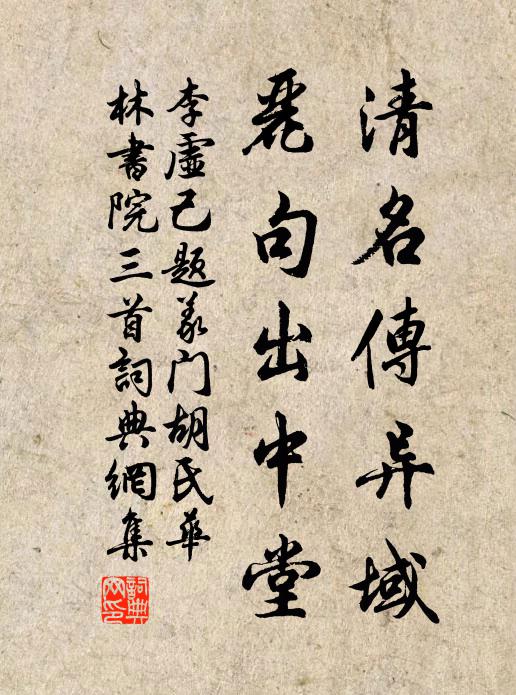 清名傳异域
麗句出中堂
李虛己題义门胡氏華
林書院三首詞典網集